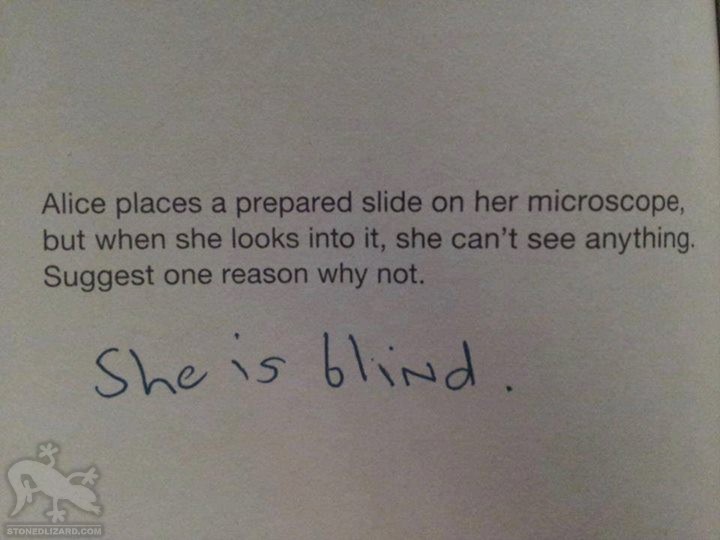 Alice places a prepared slide on her microscope,
but when she looks into it, she can't see anything.
Suggest one reason why not.
She is blind.
STONEDLIZARD.COM